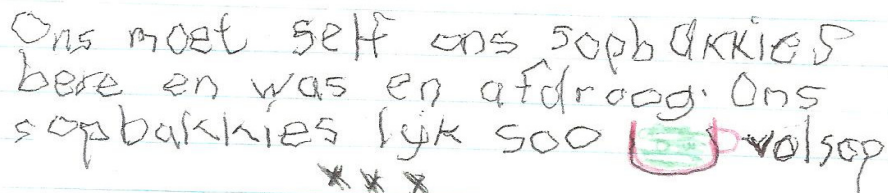 Ons moet self ons sopbakkies
bere en was en afdroog. Ons
sopbakkies lyk soo volsop
x x x